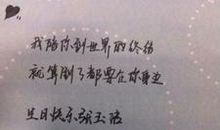 我陪你到世界的终结
就算刮了都要在你身边
生日快乐张玉洁